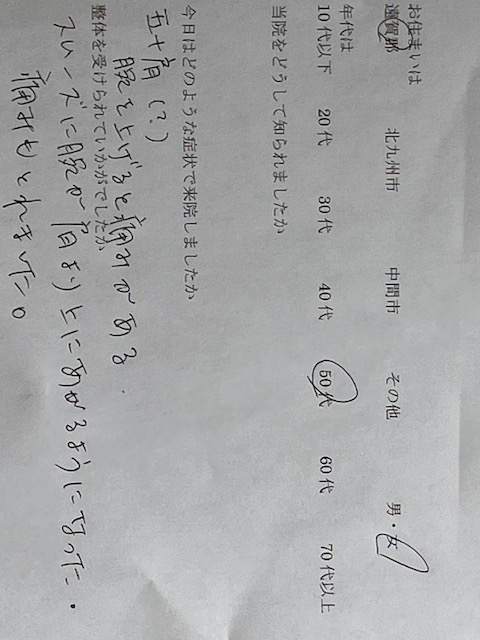 お住まいは
遠賀郡 北九州市 中間市 その他 男・女
年代は
10代以下 20代 30代 40代 50代 60代 70代以上
当院をどうして知られましたか
今日はどのような症状で来院しましたか
五十肩(?)
腕を上げると痛みがある.
整体を受けられていかがでしたか
スムーズに腕が肩より上にあがるようになった.
痛みもとれました。